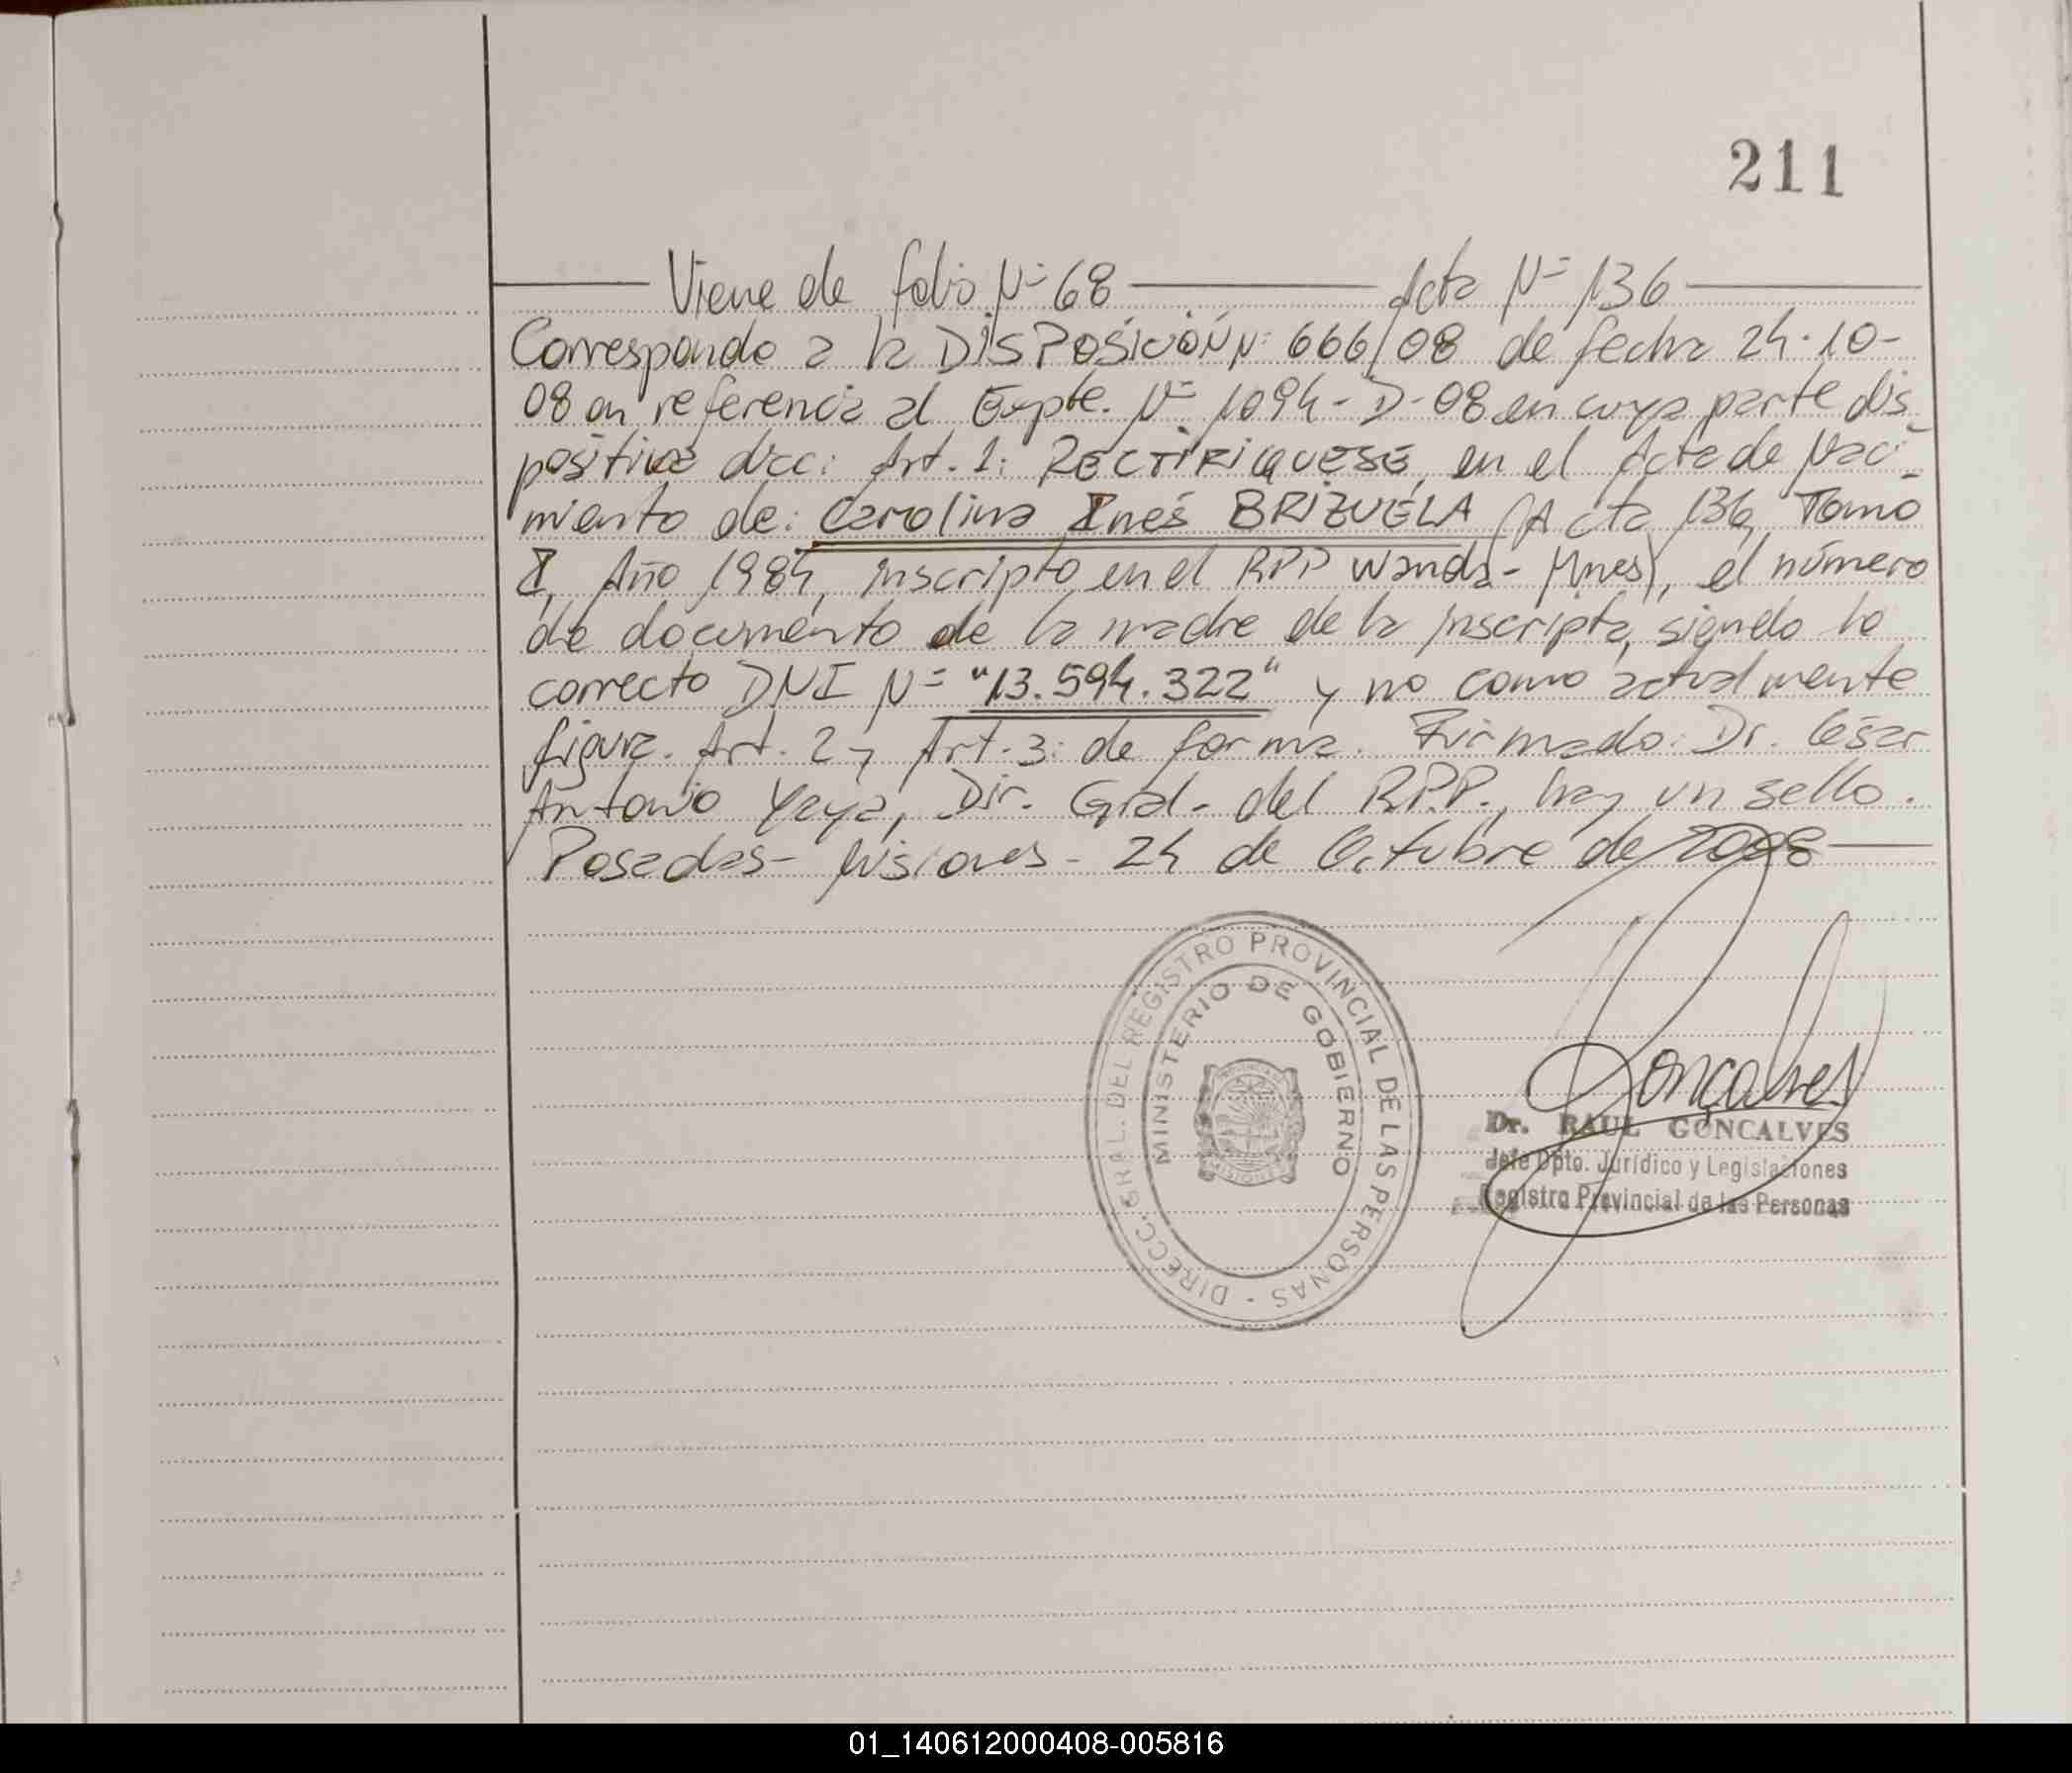 211
Viene de folio Nº 68 Acta Nº 136
Corresponde a la DISPOSICIÓN Nº 666/08 de fecha 24-10-
08 en referencia al Expte. Nº 1094-D-08 en cuya parte dis
positiva dice: Art. 1: RECTIFIQUESE, en el Acta de Naci-
miento de: Carolina Inés BRIZUELA (Acta 136, Tomo
I, Año 1984, inscripto en el RPP Wanda-Mnes), el número
de documento de la madre de la inscripta, siendo lo
correcto DNI Nº "13.594.322" y no como actualmente
figura. Art. 2 y Art. 3: de forma. Firmado: Dr. César
Antonio Yaya, Dir. Gral. del R.P.P., hay un sello.
Posadas- Misiones - 24 de Octubre de 2008
DIRECC. GRAL. DEL REGISTRO PROVINCIAL DE LAS PERSONAS -
MINISTERIO DE GOBIERNO
PROVINCIA DE
MISIONES
Goncalves
Dr. RAUL GONCALVES
Jefe Dpto. Jurídico y Legislaciones
Registro Provincial de las Personas
01_140612000408-005816